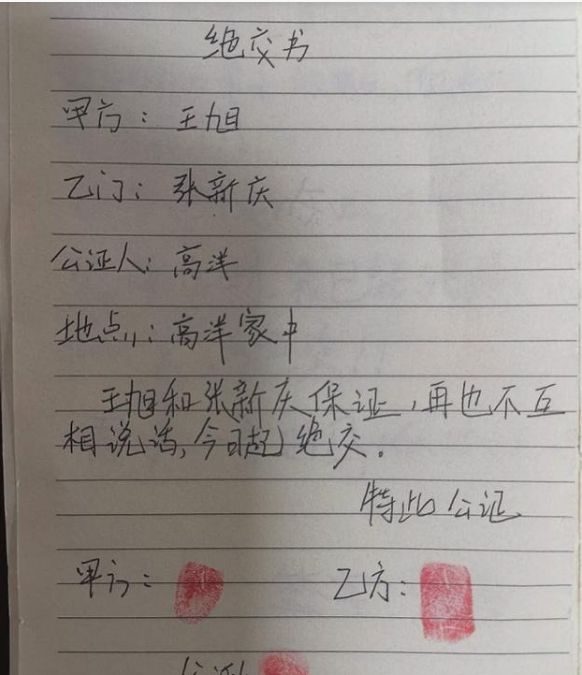 绝交书
甲方：王旭
乙方：张新庆
公证人：高洋
地点：高洋家中
王旭和张新庆保证，再也不互
相说话，今日起绝交。
特此公证
甲方：
乙方：